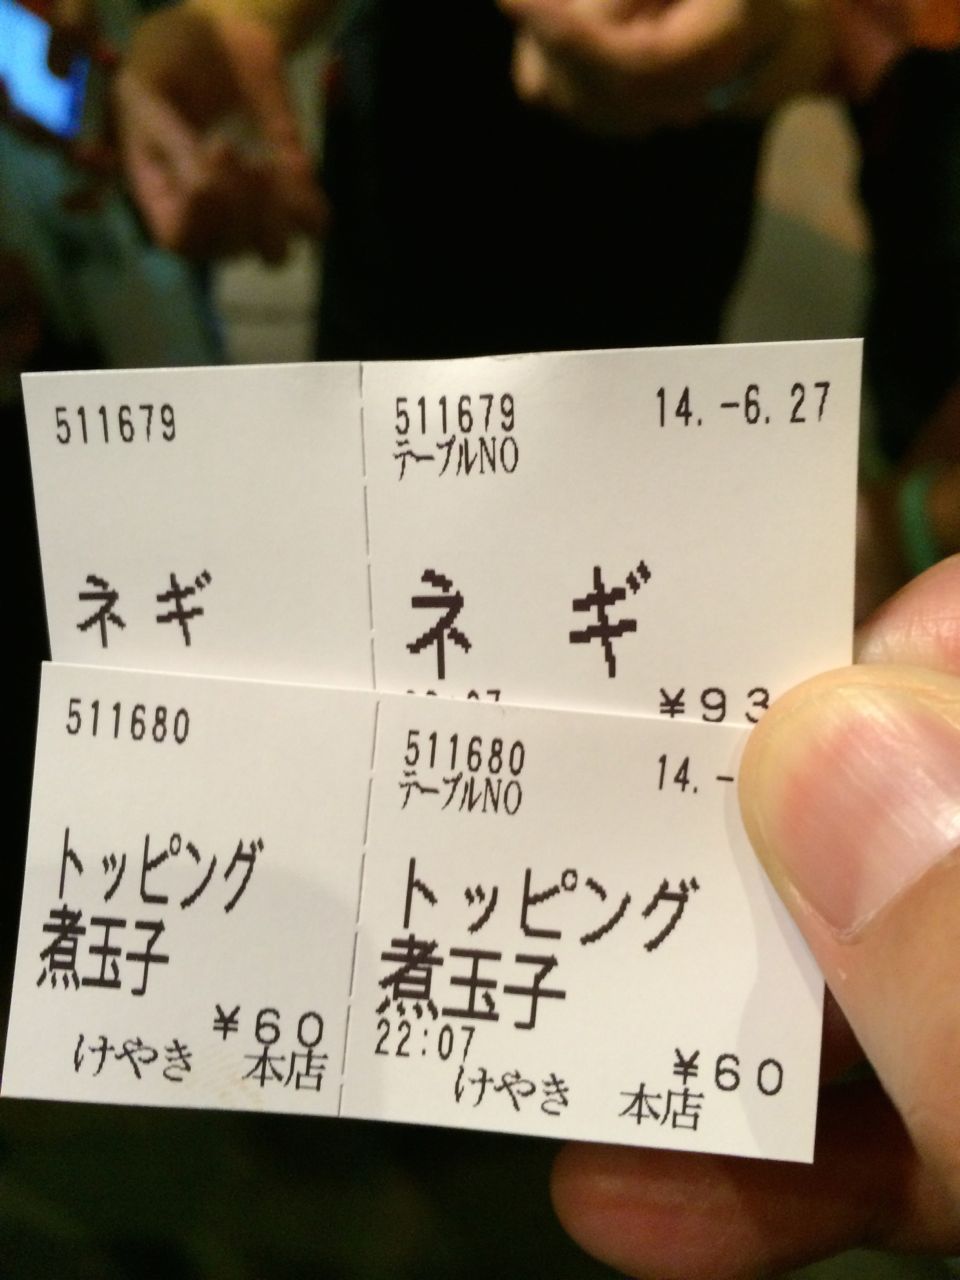 511679
ネギ
511679 14.-6.27
テーブルNO
ネギ
511680
トッピング
煮玉子
¥60
けやき 本店
511680 14.-
テーブルNO
トッピング
煮玉子
22:07
¥60
けやき 本店